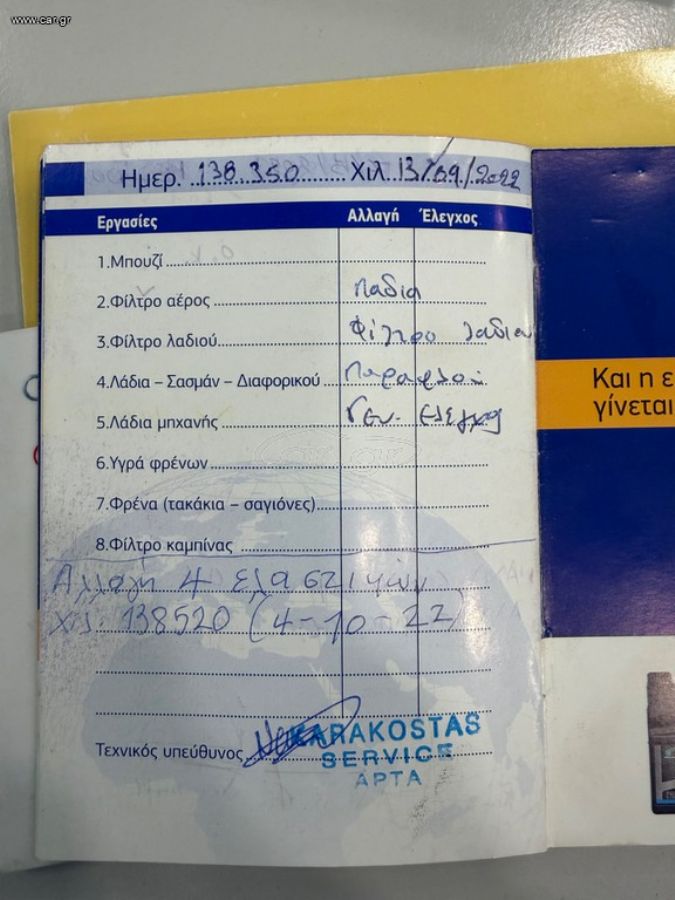 www.car.gr
Ημερ. 138.350 Χιλ. 13/09/2022
Εργασίες Αλλαγή Έλεγχος
1.Μπουζί
2.Φίλτρο αέρος λαδια
3.Φίλτρο λαδιού φίλτρο λαδιου
4.Λάδια – Σασμάν – Διαφορικού
5.Λάδια μηχανής Γεν. ελεγχος
6.Υγρά φρένων
7.Φρένα (τακάκια – σαγιόνες)
8.Φίλτρο καμπίνας
Αλλαγή 4 ελαστικών
Χιλ. 138520 (4-10-22)
Τεχνικός υπεύθυνος
KARAKOSTAS
SERVICE
ΑΡΤΑ
Και η ε
γίνεται